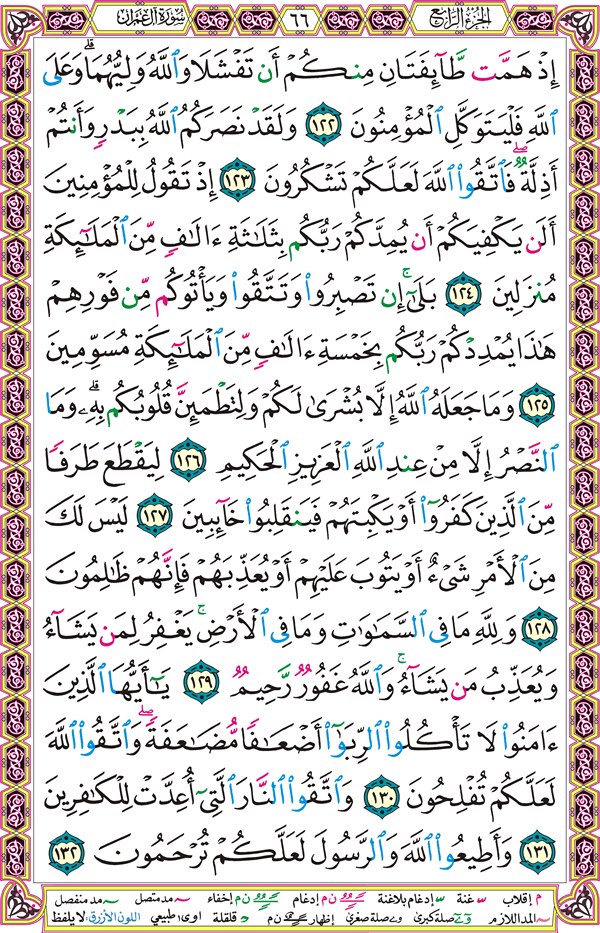 الجزء الرابع
٦٦
سورة آل عمران
إِذْ هَمَّت طَّآئِفَتَانِ مِنكُمْ أَن تَفْشَلَا وَٱللَّهُ وَلِيُّهُمَا ۗ وَعَلَى
ٱللَّهِ فَلْيَتَوَكَّلِ ٱلْمُؤْمِنُونَ ١٢٢ وَلَقَدْ نَصَرَكُمُ ٱللَّهُ بِبَدْرٍ وَأَنتُمْ
أَذِلَّةٌ ۖ فَٱتَّقُوا۟ ٱللَّهَ لَعَلَّكُمْ تَشْكُرُونَ ١٢٣ إِذْ تَقُولُ لِلْمُؤْمِنِينَ
أَلَن يَكْفِيَكُمْ أَن يُمِدَّكُمْ رَبُّكُم بِثَلَاثَةِ ءَالَافٍ مِّنَ ٱلْمَلَائِكَةِ
مُنزَلِينَ ١٢٤ بَلَىٰٓ ۚ إِن تَصْبِرُوا۟ وَتَتَّقُوا۟ وَيَأْتُوكُم مِّن فَوْرِهِمْ
هَٰذَا يُمْدِدْكُمْ رَبُّكُم بِخَمْسَةِ ءَالَافٍ مِّنَ ٱلْمَلَائِكَةِ مُسَوِّمِينَ
١٢٥ وَمَا جَعَلَهُ ٱللَّهُ إِلَّا بُشْرَىٰ لَكُمْ وَلِتَطْمَئِنَّ قُلُوبُكُم بِهِۦ ۗ وَمَا
ٱلنَّصْرُ إِلَّا مِنْ عِندِ ٱللَّهِ ٱلْعَزِيزِ ٱلْحَكِيمِ ١٢٦ لِيَقْطَعَ طَرَفًا
مِّنَ ٱلَّذِينَ كَفَرُوٓا۟ أَوْ يَكْبِتَهُمْ فَيَنقَلِبُوا۟ خَآئِبِينَ ١٢٧ لَيْسَ لَكَ
مِنَ ٱلْأَمْرِ شَىْءٌ أَوْ يَتُوبَ عَلَيْهِمْ أَوْ يُعَذِّبَهُمْ فَإِنَّهُمْ ظَالِمُونَ
١٢٨ وَلِلَّهِ مَا فِى ٱلسَّمَاوَاتِ وَمَا فِى ٱلْأَرْضِ ۚ يَغْفِرُ لِمَن يَشَآءُ
وَيُعَذِّبُ مَن يَشَآءُ ۚ وَٱللَّهُ غَفُورٌ رَّحِيمٌ ١٢٩ يَٰٓأَيُّهَا ٱلَّذِينَ
ءَامَنُوا۟ لَا تَأْكُلُوا۟ ٱلرِّبَوٰٓا۟ أَضْعَافًا مُّضَاعَفَةً ۖ وَٱتَّقُوا۟ ٱللَّهَ
لَعَلَّكُمْ تُفْلِحُونَ ١٣٠ وَٱتَّقُوا۟ ٱلنَّارَ ٱلَّتِىٓ أُعِدَّتْ لِلْكَافِرِينَ
١٣١ وَأَطِيعُوا۟ ٱللَّهَ وَٱلرَّسُولَ لَعَلَّكُمْ تُرْحَمُونَ ١٣٢
م إقلاب غنة إدغام بلاغنة ن م إدغام ن م إخفاء مد متصل مد منفصل
المد اللازم صلة كبرى صلة صغرى إظهار ن م قلقلة اوى: طبيعي اللون الأزرق: لا يلفظ